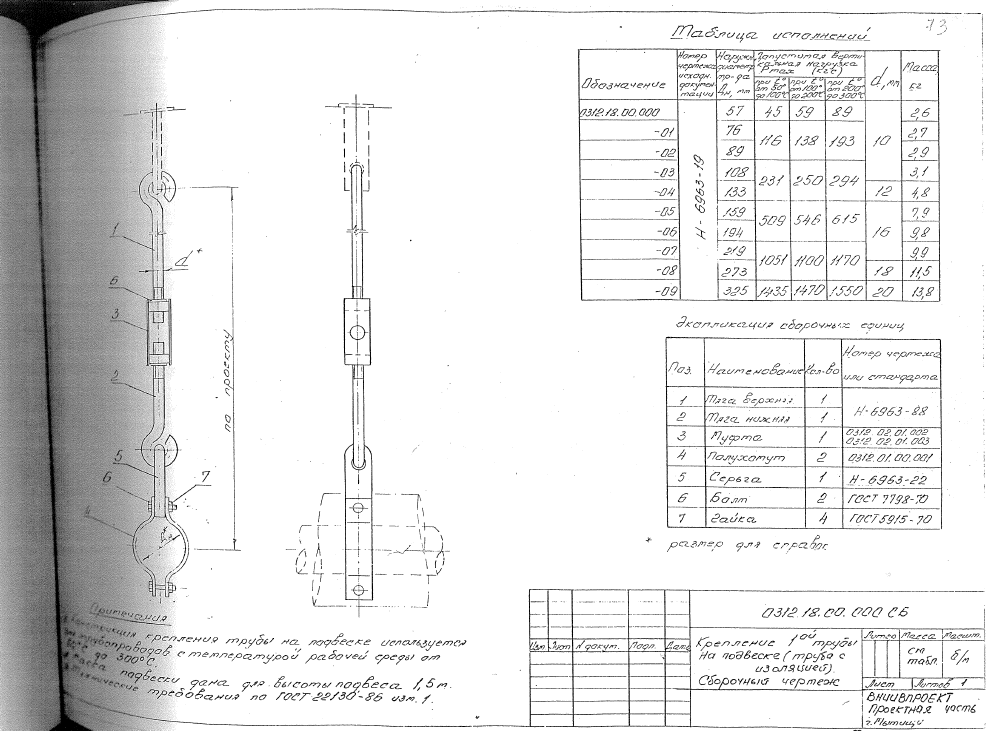 73
Таблица исполнений
Обозначение
Номер чертежа исходн. докумен тации
Наружн. диаметр тр-да Dн, мм
Допустимая верти- кальная нагрузка Pmax (кгс)
при t° от 50° до 100°С
при t° от 100° до 200°С
при t° от 200° до 300°С
d, мм
Масса кг
0312.18.00.000 57 45 59 89 2,6
-01 76 116 138 193 10 2,7
-02 89 2,9
-03 108 231 250 294 3,1
-04 133 12 4,8
-05 159 509 546 615 16 7,9
-06 194 9,8
-07 219 1051 1100 1170 9,9
-08 273 18 11,5
-09 325 1435 1470 1550 20 13,8
Н-6963-19
Экспликация сборочных единиц
Поз. Наименование Кол-во Номер чертежа или стандарта
1 Тяга верхняя 1 Н-6963-88
2 Тяга нижняя 1
3 Муфта 1 0312.02.01.002
0312.02.01.003
4 Полухомут 2 0312.01.00.001
5 Серьга 1 Н-6963-22
6 Болт 2 ГОСТ 7798-70
7 Гайка 4 ГОСТ 5915-70
* размер для справок
1
d*
6
3
2
5
6
7
4
по проекту
Примечания
Конструкция крепления трубы на подвеске используется
трубопроводов с температурой рабочей среды от
до 300°С.
Масса подвески дана для высоты подвеса 1,5 м.
требования по ГОСТ 22130-86 изм. 1.
0312.18.00.000 СБ
Изм Лист N докум. Подп. Дата
Крепление 1ой трубы
На подвеске (труба с
изоляцией).
Сборочный чертеж
Литер Масса Масшт.
см табл. б/м
Лист Листов 1
ВНИИВПРОЕКТ
Проектная часть
г. Мытищи